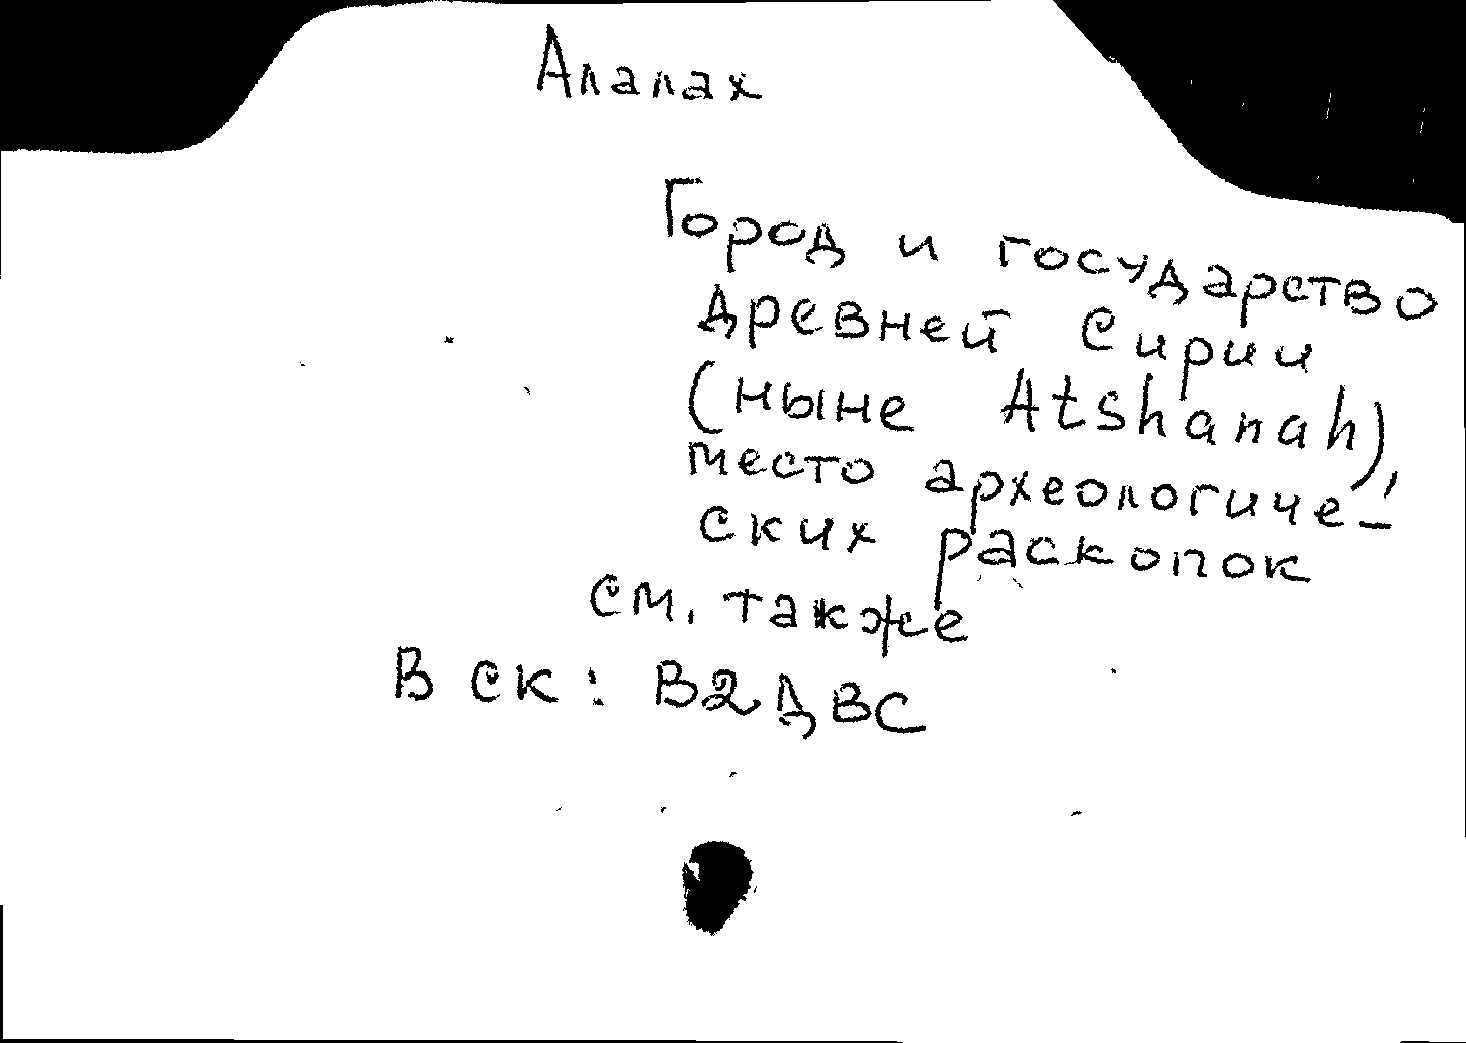 Алалах
Город и государство
древней Сирии
(ныне Atshanah),
место археологиче-
ских раскопок
см. также
В СК: В2ДВС